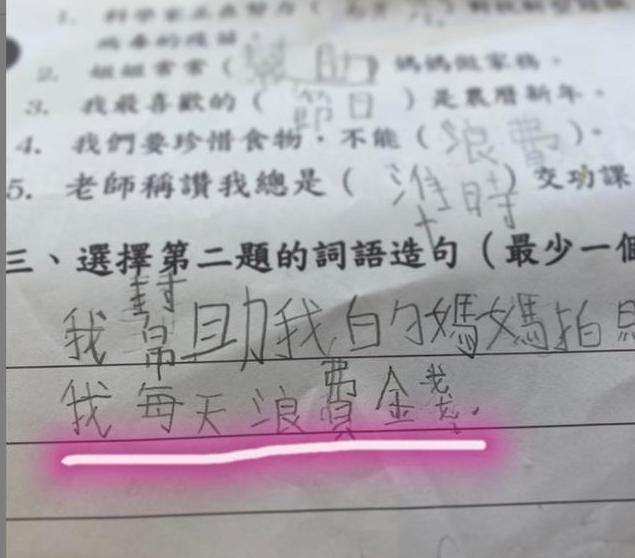 1. 科學家正在努力(
病毒的疫苗。
2. 姐姐常常(幫助)媽媽做家務。
3. 我最喜歡的(節日)是農曆新年。
4. 我們要珍惜食物,不能(浪費)。
5. 老師稱讚我總是(準時)交功課
三、選擇第二題的詞語造句(最少一個
我幫助我白勺媽媽拍照
我每天浪費金錢.